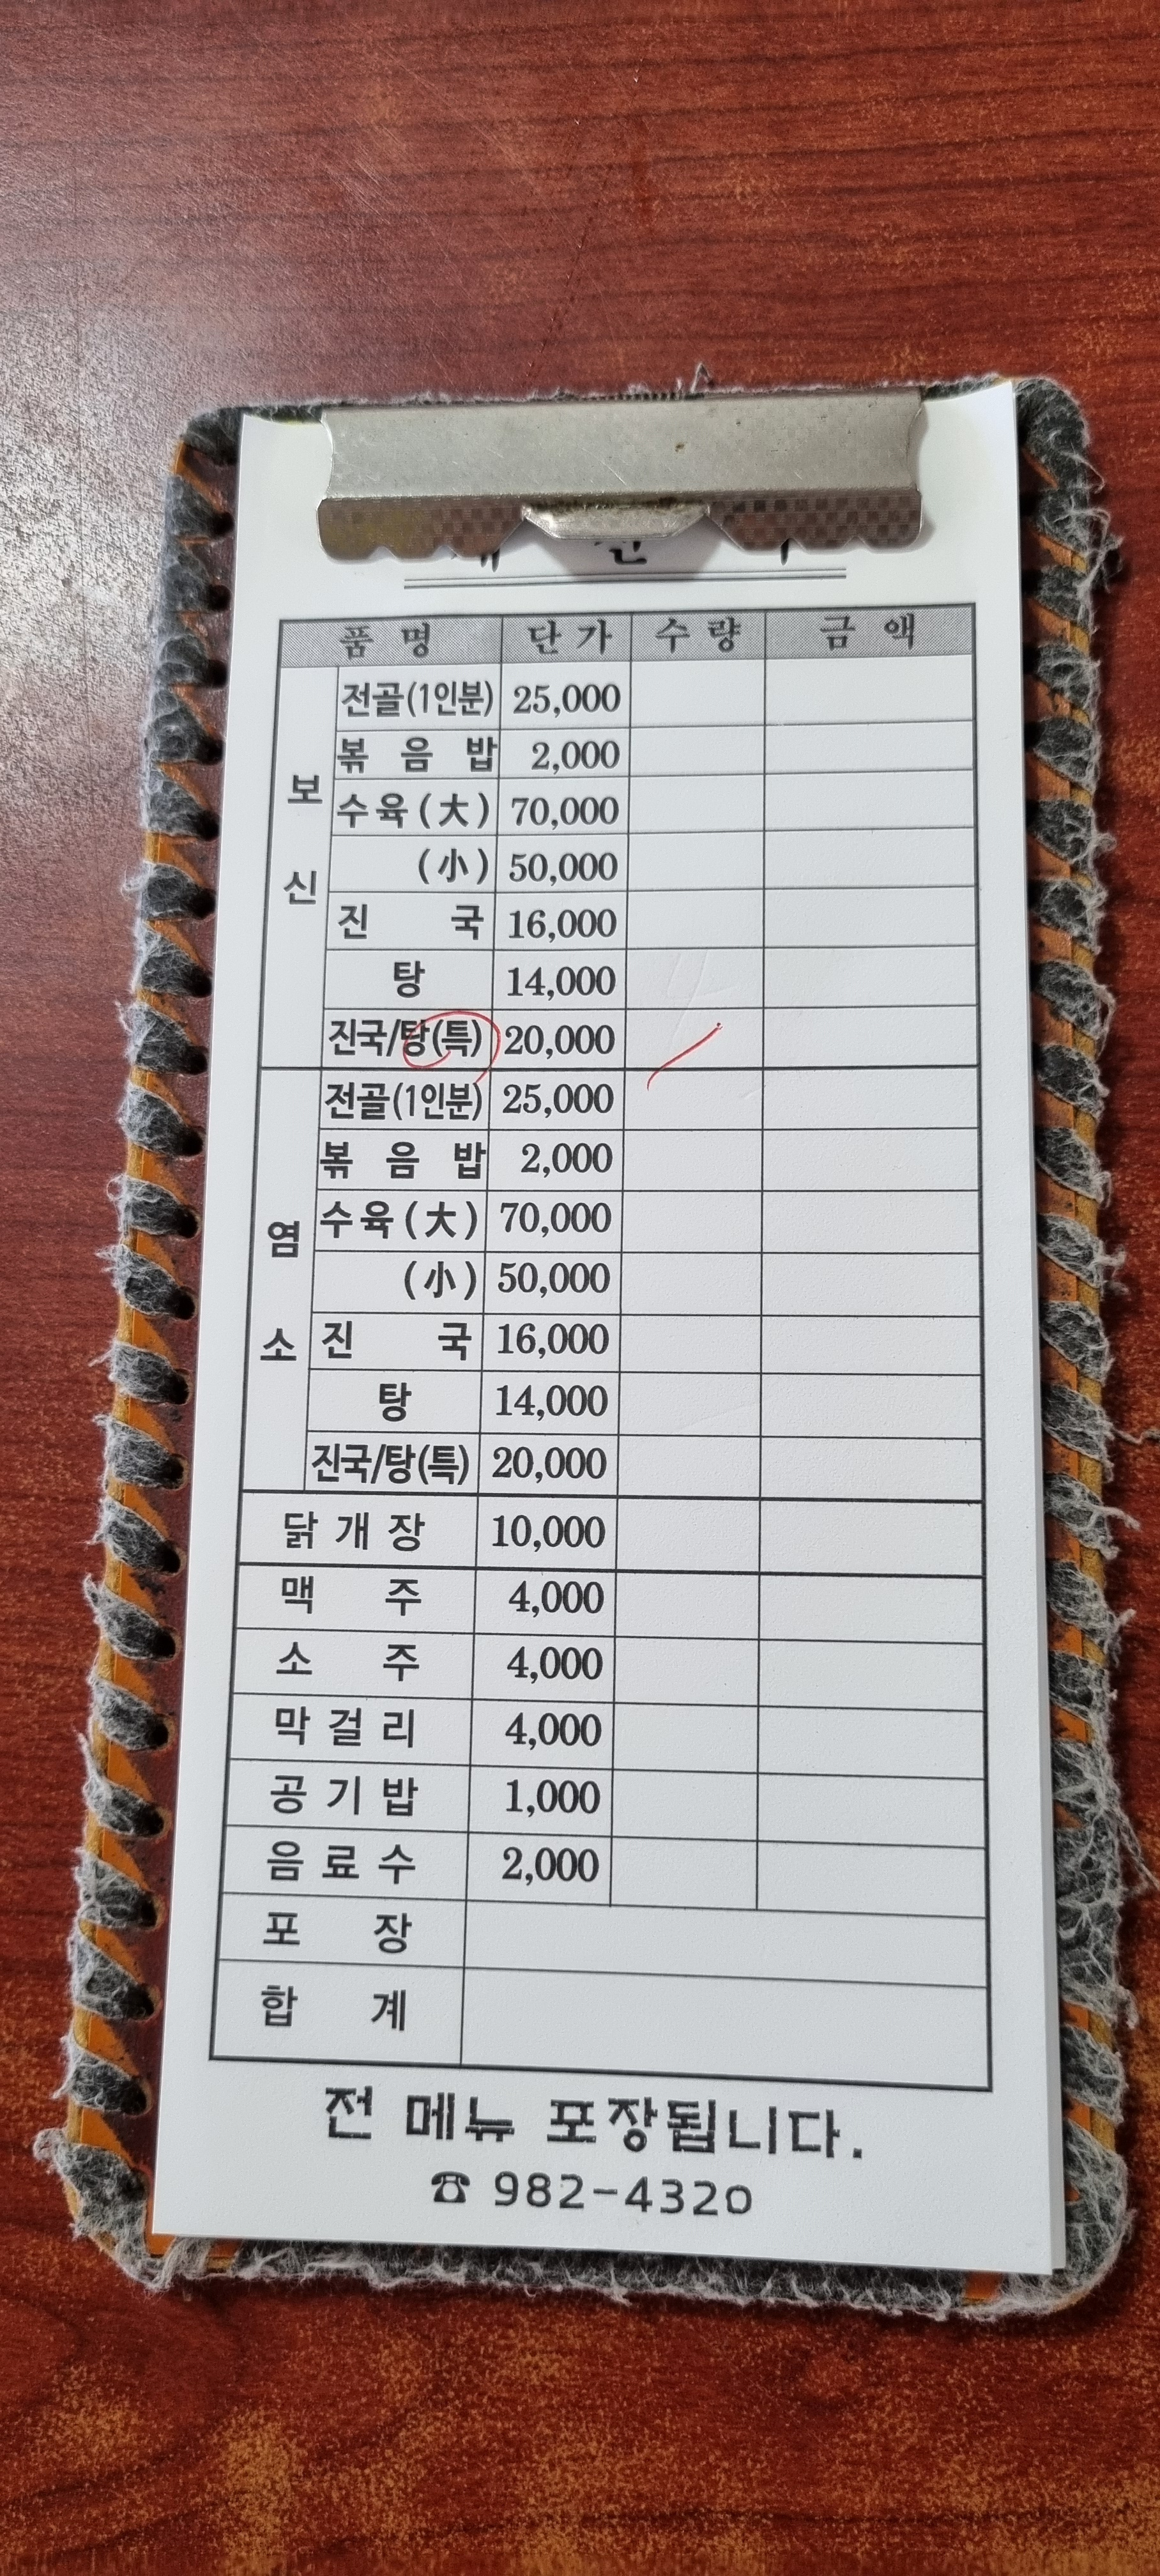 품 명 단 가 수 량 금 액
보신
전골(1인분) 25,000
볶 음 밥 2,000
수육(大) 70,000
(小) 50,000
진 국 16,000
탕 14,000
진국/탕(특) 20,000
염소
전골(1인분) 25,000
볶 음 밥 2,000
수육(大) 70,000
(小) 50,000
진 국 16,000
탕 14,000
진국/탕(특) 20,000
닭 개 장 10,000
맥 주 4,000
소 주 4,000
막 걸 리 4,000
공 기 밥 1,000
음 료 수 2,000
포 장
합 계
전 메뉴 포장됩니다.
☎ 982-4320